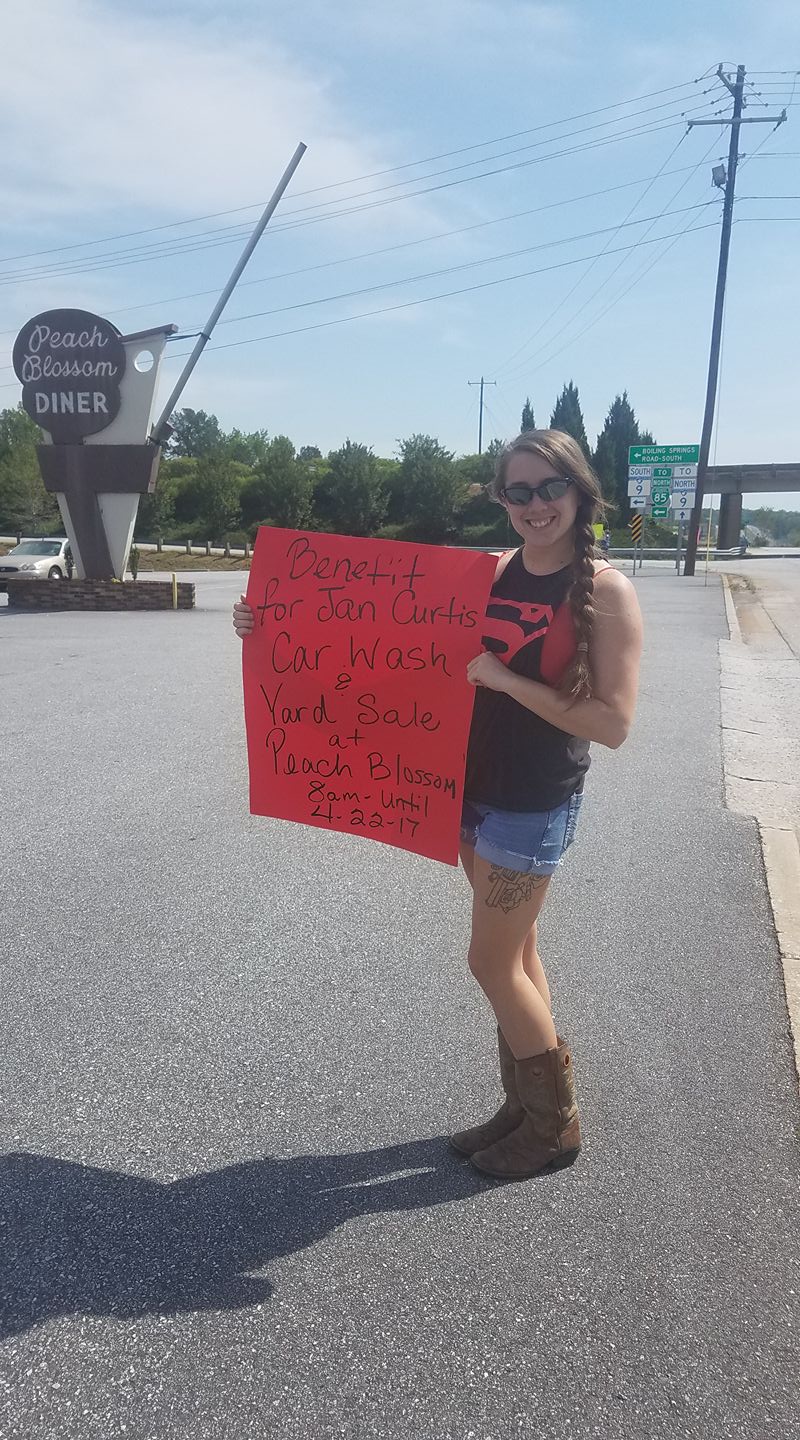 Peach
Blossom
DINER
BOILING SPRINGS
ROAD-SOUTH
SOUTH
9
TO
NORTH
85
TO
NORTH
9
Benefit
for Jan Curtis
Car Wash
&
Yard Sale
at
Peach Blossom
8am - Until
4-22-17